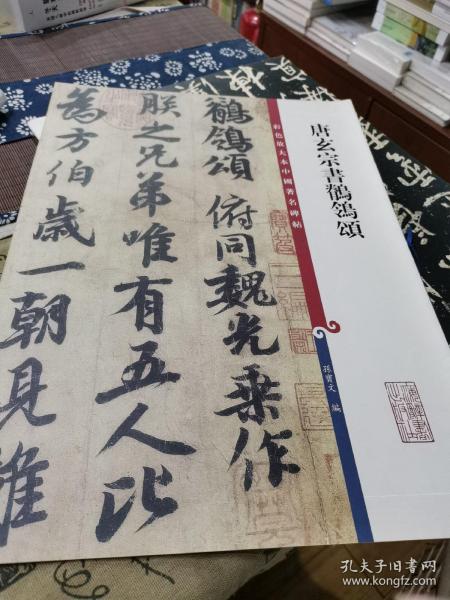 唐玄宗書鶺鴒頌
彩色放大本中國著名碑帖
孫寶文 編
鶺鴒頌 俯同魏光乗作
朕之兄弟唯有五人比
為方伯歳一朝見雖
孔夫子旧书网
www.kongfz.com